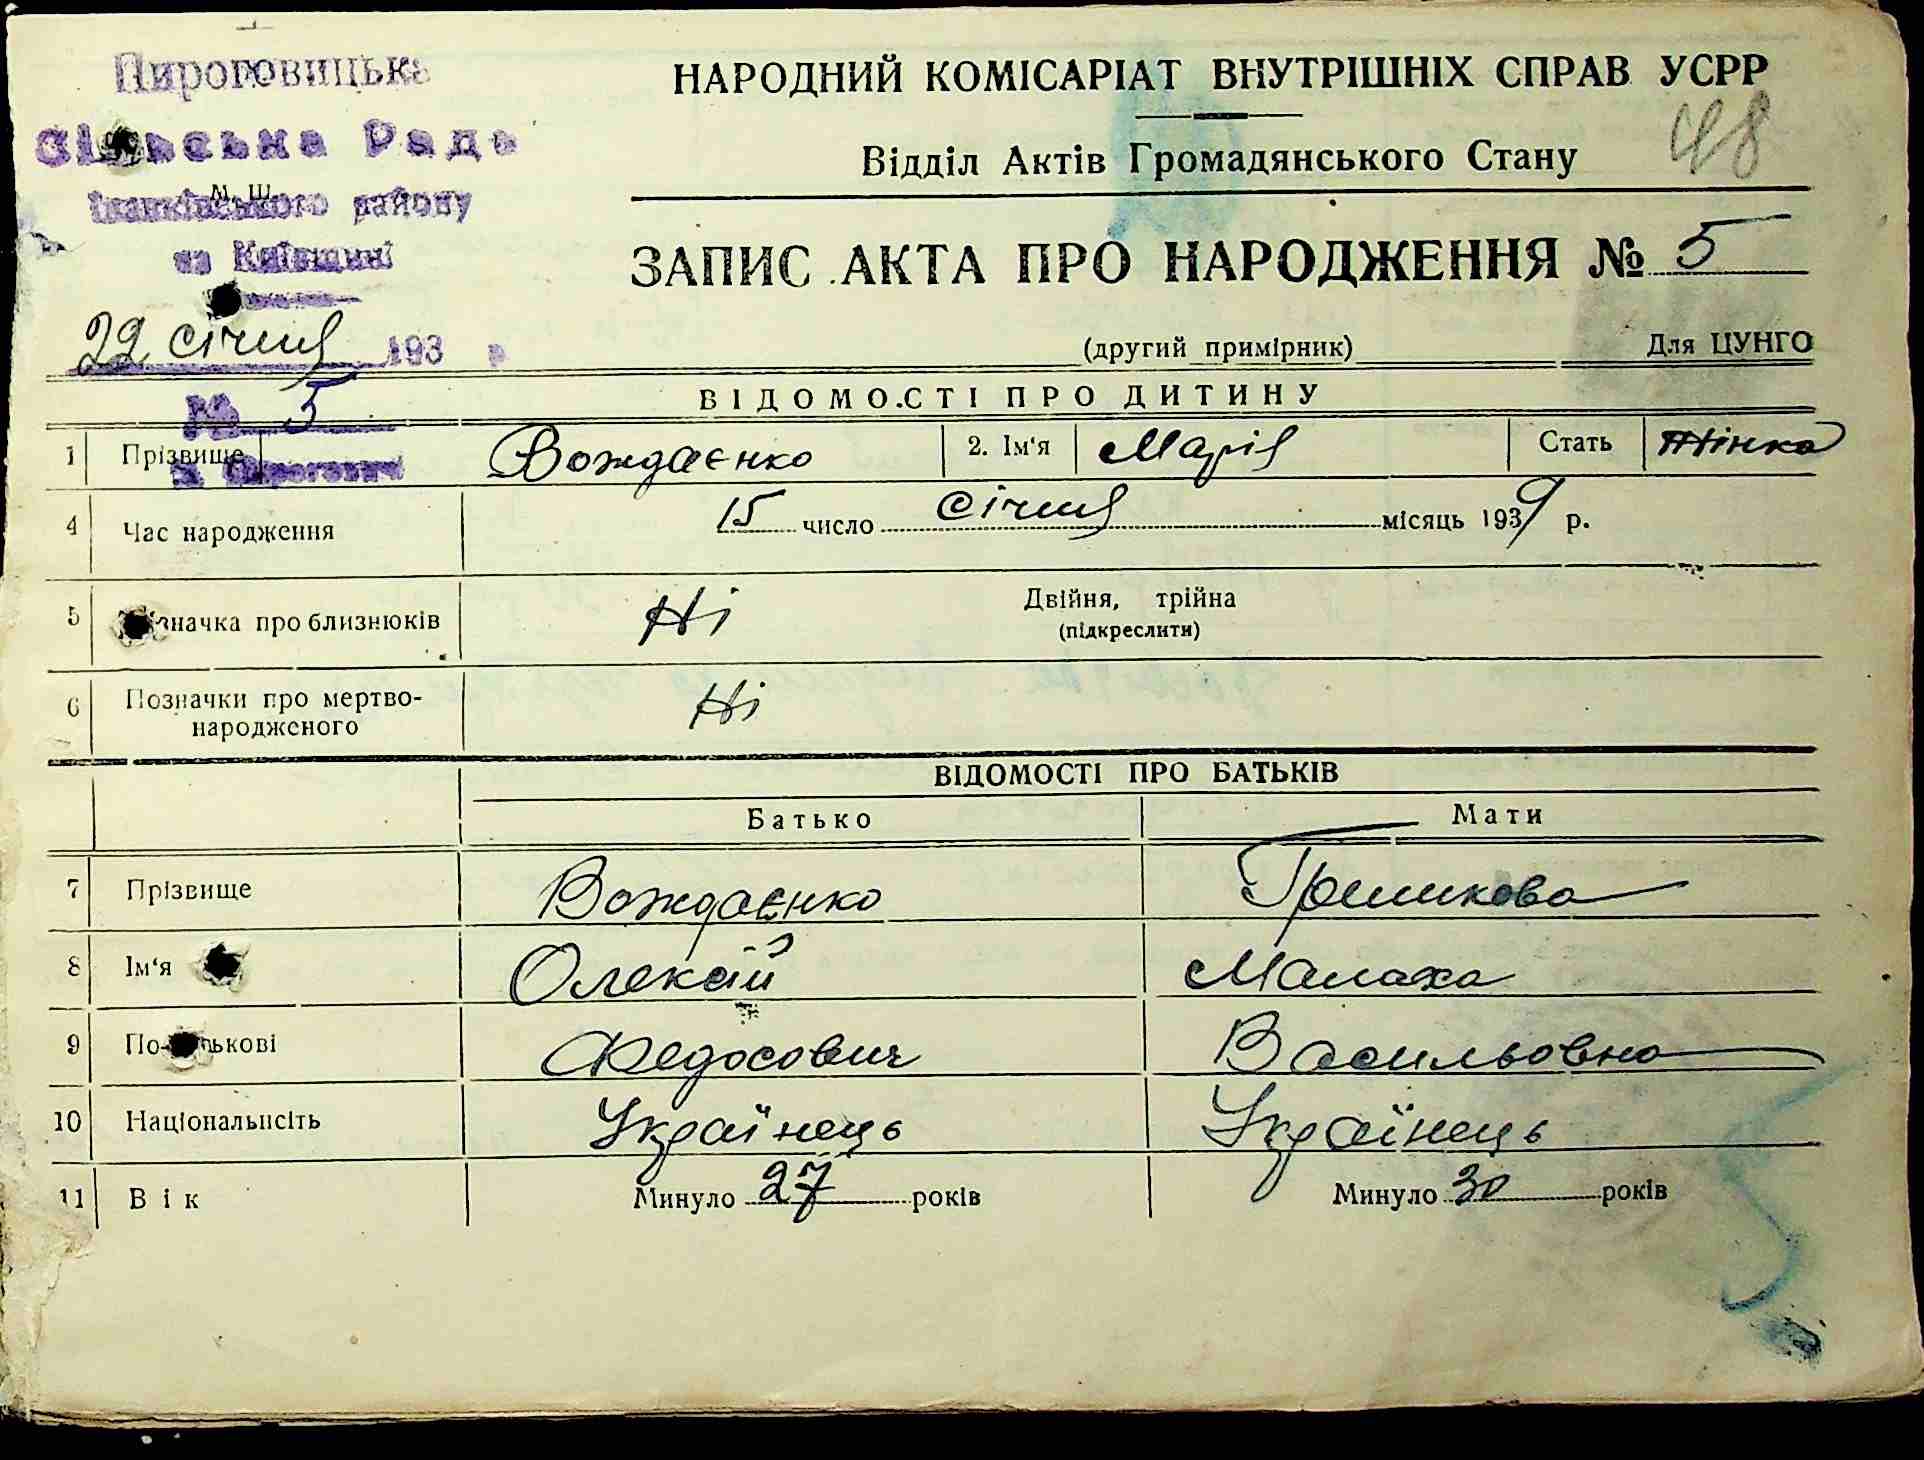 Пироговицька
Сільська Рада
м. Ш.
Іванківського району
на Київщині
22 січня 193 р
№ 5
НАРОДНИЙ КОМІСАРІАТ ВНУТРІШНІХ СПРАВ УСРР
48
Відділ Актів Громадянського Стану
ЗАПИС АКТА ПРО НАРОДЖЕННЯ № 5
(другий примірник) Для ЦУНГО
ВІДОМОСТІ ПРО ДИТИНУ
1 Прізвище Вождаєнко 2. Ім‘я Марія Стать Жінка
4 Час народження 15 число січня місяць 1939 р.
5 значка про близнюків Ні Двійня, трійна
(підкреслити)
6 Позначки про мертво-
народженого Ні
ВІДОМОСТІ ПРО БАТЬКІВ
Батько Мати
7 Прізвище Вождаєнко
8 Ім‘я Олексій Малаха
9 По-ькові Федосович Васильовна
10 Національність Українець Українець
11 Вік Минуло 27 років Минуло 30 років